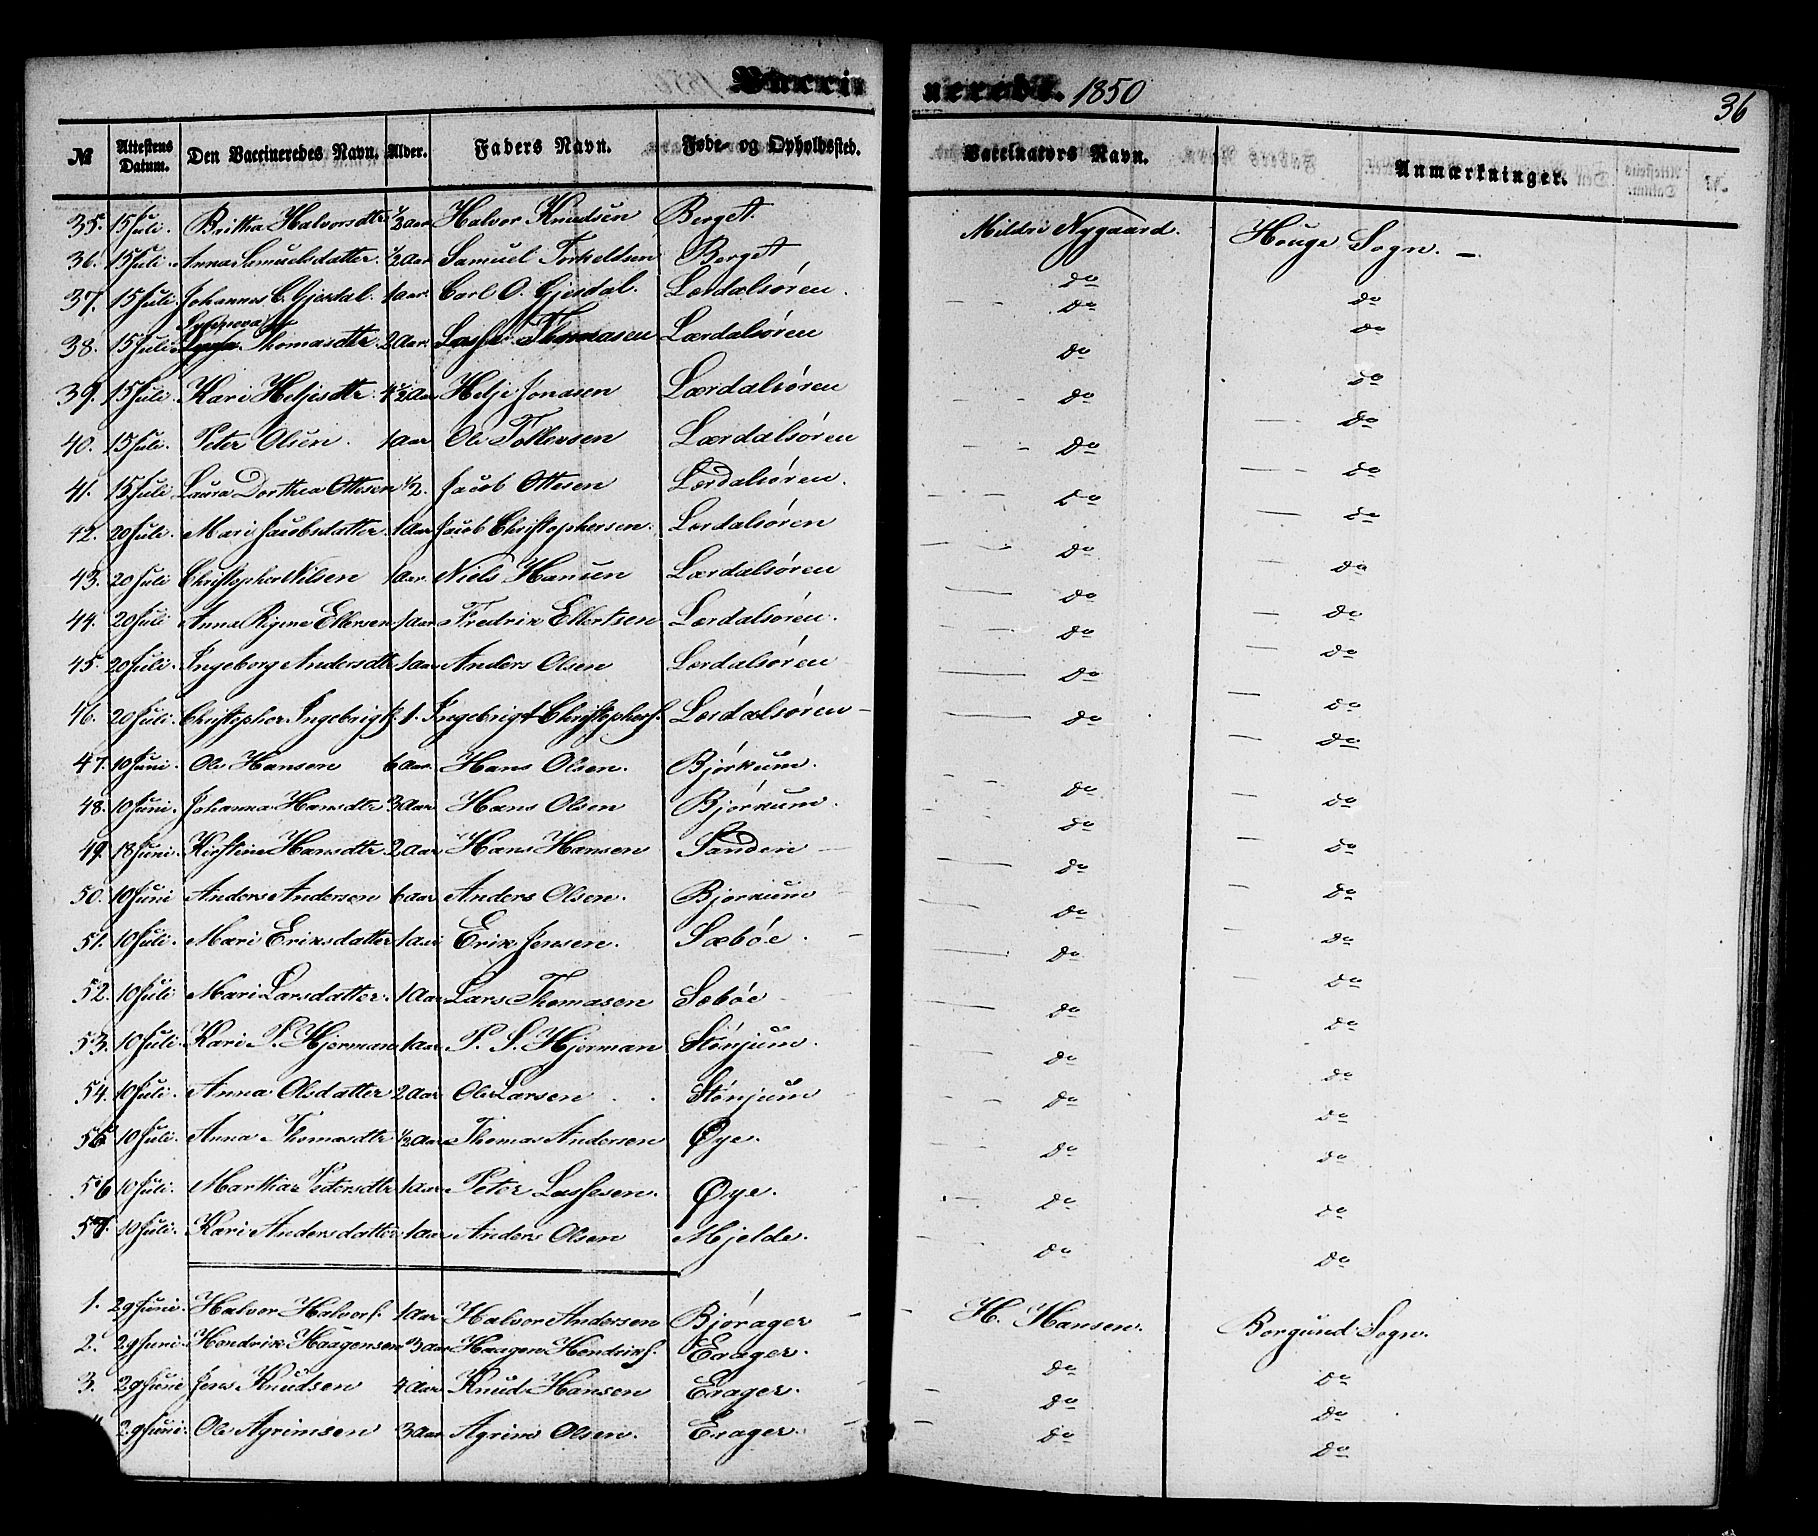 Vaccineredt. 1850 36
№ Attestens Datum. Den Vaccineredes Navn. Alder. Faders Navn. Føde- og Opholdssted. Vaccinators Navn. Anmærkninger.
35. 15 Juli. Britha Halvorsdtr 1/2 aar Halvor Knudsen Berget. Mildri Nygaard. Houge Sogn. –
36. 15 Juli. Anna Samuelsdatter. 1/2 aar Samuel Torkeldsen Berget do do
37. 15 Juli Johannes C. Gjesdal. 1 aar. Carl O. Gjesdal. Lærdalsören. do do
38. 15 Juli Thomasdtr. 2 Aar. Lasse Thomasen Lærdalsören do do
39. 15 Juli. Kari Heljesdtr. 4 1/2 aar Helje Jonasen Lærdalsören do do
40. 15 Juli. Peter Olsen. 1 aar Ole Tollevsen Lærdalsören do do
41. 15 Juli Laura Dorthea Ottesen 1/2. Jacob Ottesen Lærdalsören. do do
42. 20 Juli. Mari Jacobsdatter. 1 aar Jacob Christophersen. Lærdalsören do do
43. 20 Juli Christopher Nilsen 1 aar. Niels Hansen Lærdalsören do do
44. 20 Juli Anna Rigene Ellersen 1 aar Fredrik Ellertsen Lærdalsören. do do
45. 20 Juli. Ingeborg Andersdtr 1 aar Anders Olsen Lærdalsören do do
46. 20 Juli. Christopher Ingebrigts. 1. Ingebrigt Christophers. Lærdalsören do do
47. 10 Juni. Ole Hansen 6 aar. Hans Olsen. Bjørkum. do do
48. 10 Juni. Johanna Hansdtr. 3 aar Hans Olsen Bjørkum. do do
49. 18 Juni. Kirstine Hansdtr 2 aar Hans Hansen Sanden do do
50. 10 Juni Anders Andersen 6 aar Anders Olsen. Bjørkum do do
51. 10 Juli. Mari Eriksdatter 1 aar Erik Jensen. Sæbøe. do do
52. 10 Juli Mari Larsdatter. 1 Aar Lars Thomasen Sæbøe do do
53. 10 Juli. Kari P. Hjerman 1 aar P. S. Hjerman Stønjum. do do
54. 10 Juli. Anna Olsdatter 2 aar Ole Larsen Stønjum do do
55 10 Juli. Anna Thomasdtr 1/2 aar Thomas Andersen Øye. do do
56 10 Juli. Martha Petersdtr 1 aar Peter Lassesen. Øye. do do
57. 10 Juli. Kari Andersdatter 1 aar Anders Olsen Mjelde. do do
1. 29 Juni. Halvor Halvors. 1 aar Halvor Andersen Bjørager H. Hansen. Borgund Sogn.
2. 29 Juni. Hendrik Haagensen 3 aar Haagen Hendriks. Erager. do do
3. 29 Juni Jens Knudsen 4 aar Knud Hansen Erager. do do
29 Juni. Ole Agrimsen 3 aar Agrim Olsen. Erager. do do